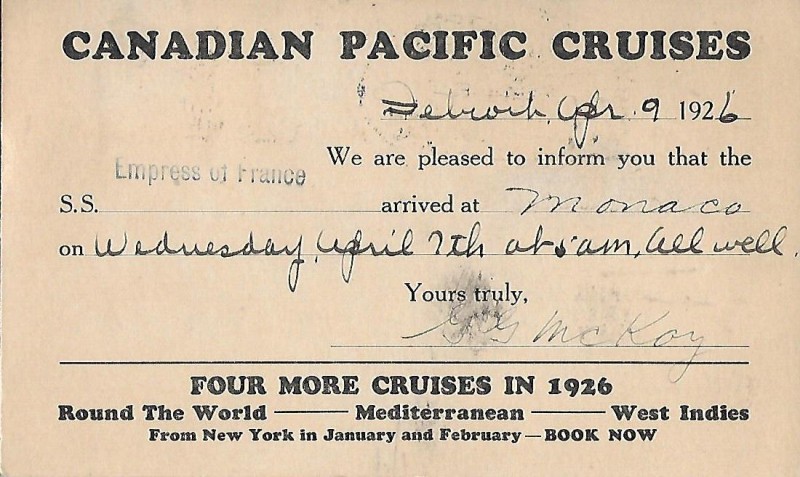 CANADIAN PACIFIC CRUISES
Detroit, Apr. 9 1926
We are pleased to inform you that the
Empress of France
S.S. arrived at Monaco
on Wednesday, April 7th at 5 am, All well.
Yours truly,
McKay
FOUR MORE CRUISES IN 1926
Round The World — Mediterranean — West Indies
From New York in January and February—BOOK NOW